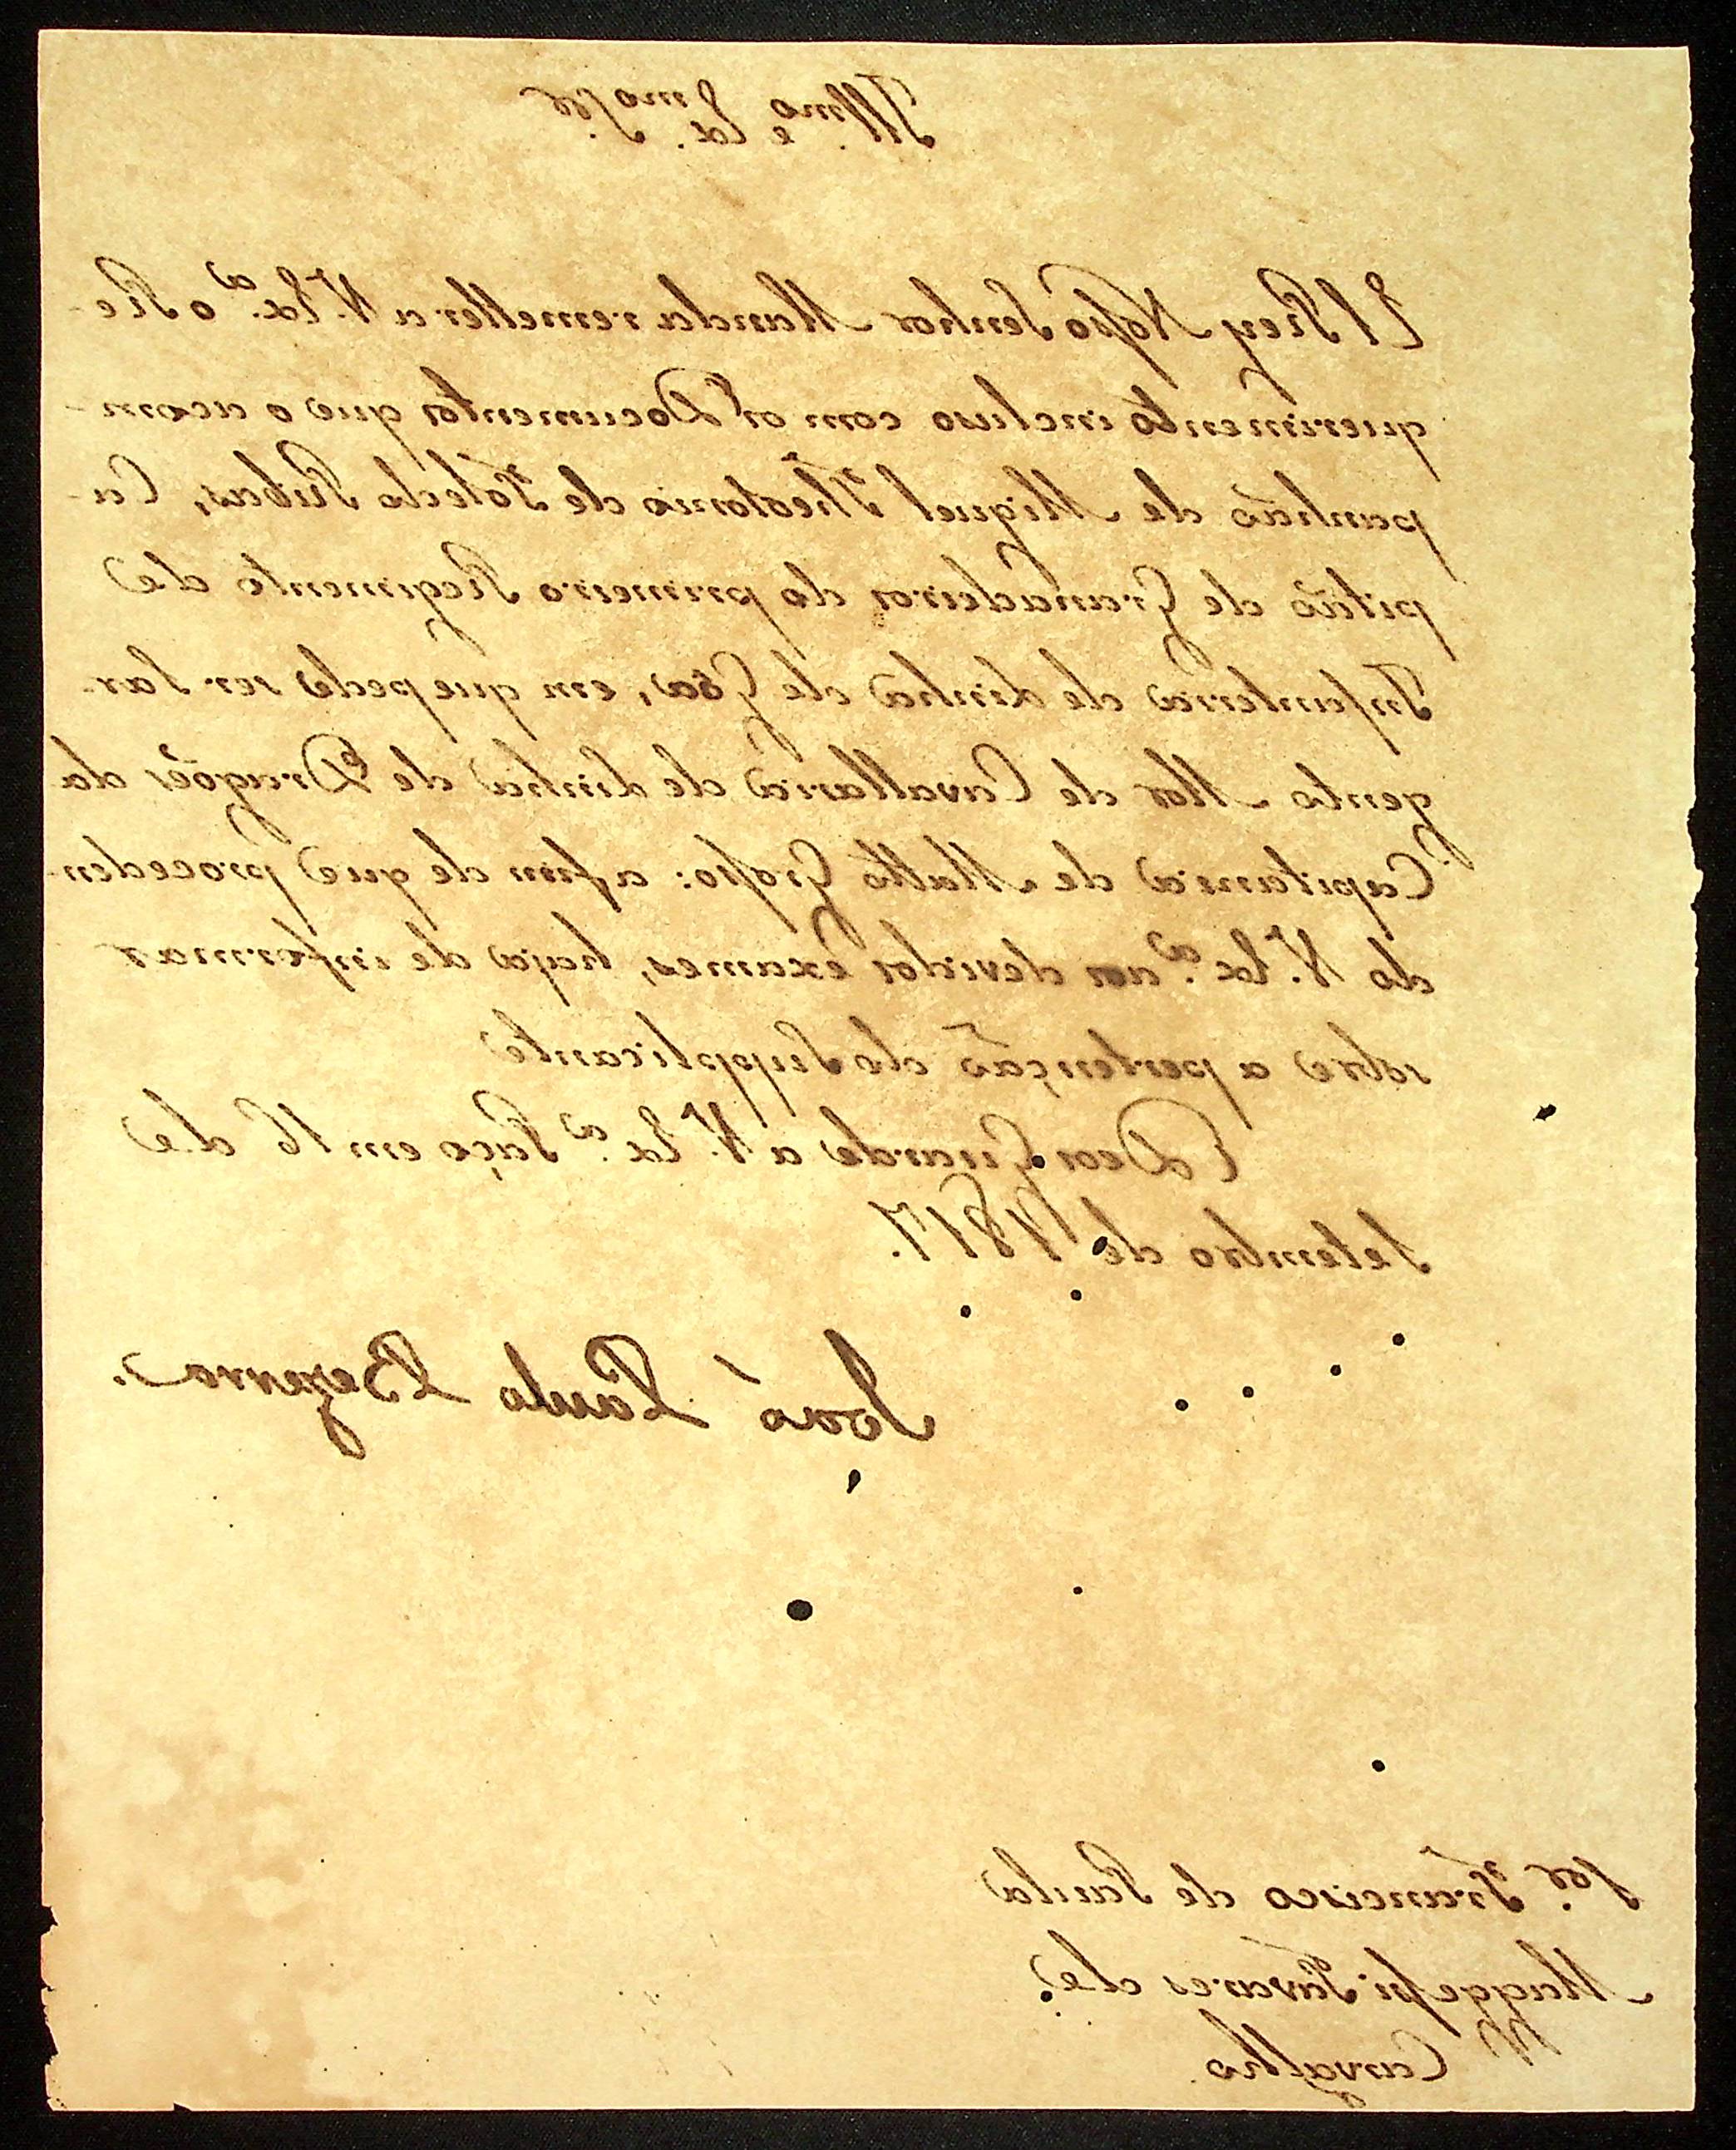 Illmo. e Exmo. Sr.
El Rey Nosso Senhor Manda remetter a V. Exa. o Re-
querimento incluso com os Documentos que o acom-
panhão de Miguel Theotonio de Toledo Ribas, Ca-
pitão de Granadeiros do primeiro Regimento de
Infanteria de Linha de Goa, em que pede ser Sar-
gento Mor de Cavallaria de Linha de Dragões da
Capitania de Matto Grosso: a fim de que proceden-
do V. Exa. aos devidos exames, haja de informar
sobre a pertenção do Supplicante
Deos Guarde a V. Exa. Paço em 16 de
Setembro de 1817.
João Paulo Bezerra.
Sor. Francisco de Paula
Maggessi Tavares de
Carvalho